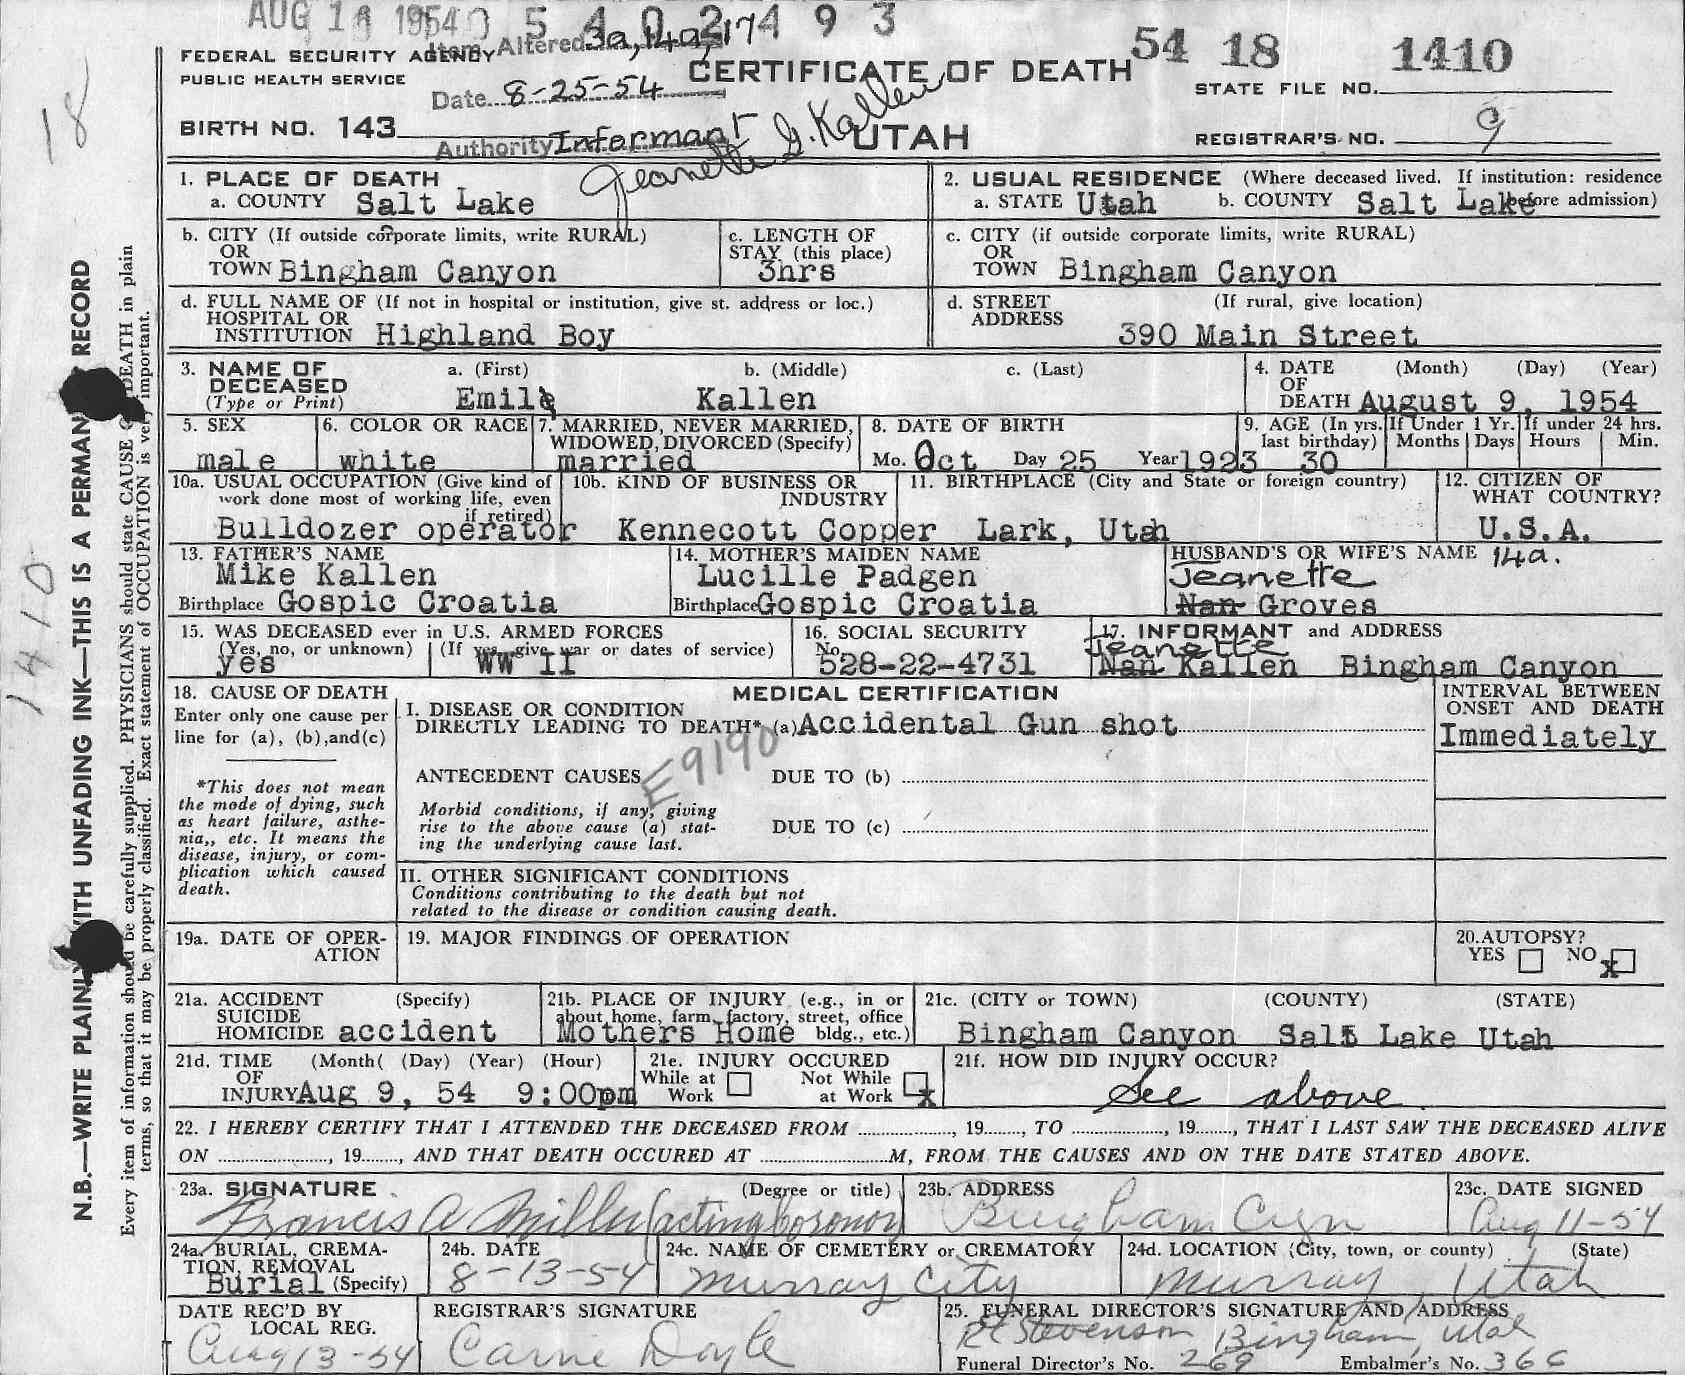 AUG 18 1954
5 4 0 2 4 9 3
Item Altered 3a, 14a, 17
FEDERAL SECURITY AGENCY
PUBLIC HEALTH SERVICE
CERTIFICATE OF DEATH
54 18 1410
STATE FILE NO.
Date 8-25-54
BIRTH NO. 143
UTAH
REGISTRAR'S NO. 9
Authority Informant
Jeanette G. Kallen
18
1410
N.B.—WRITE PLAINLY WITH UNFADING INK—THIS IS A PERMAN RECORD
Every item of information should be carefully supplied. PHYSICIANS should state CAUSE DEATH in plain
terms, so that it may be properly classified. Exact statement of OCCUPATION is very important.
1. PLACE OF DEATH
a. COUNTY Salt Lake
2. USUAL RESIDENCE (Where deceased lived. If institution: residence
a. STATE Utah b. COUNTY Salt Lake before admission)
b. CITY (If outside corporate limits, write RURAL)
OR
TOWN Bingham Canyon
c. LENGTH OF
STAY (this place)
3hrs
c. CITY (if outside corporate limits, write RURAL)
OR
TOWN Bingham Canyon
d. FULL NAME OF (If not in hospital or institution, give st. address or loc.)
HOSPITAL OR
INSTITUTION Highland Boy
d. STREET (If rural, give location)
ADDRESS
390 Main Street
3. NAME OF a. (First) b. (Middle) c. (Last)
DECEASED
(Type or Print) Emil Kallen
4. DATE (Month) (Day) (Year)
OF
DEATH August 9, 1954
5. SEX
male
6. COLOR OR RACE
white
7. MARRIED, NEVER MARRIED,
WIDOWED, DIVORCED (Specify)
married
8. DATE OF BIRTH
Mo. Oct Day 25 Year 1923
9. AGE (In yrs. If Under 1 Yr. If under 24 hrs.
last birthday) Months Days Hours Min.
30
10a. USUAL OCCUPATION (Give kind of
work done most of working life, even
if retired)
Bulldozer operator
10b. KIND OF BUSINESS OR
INDUSTRY
Kennecott Copper
11. BIRTHPLACE (City and State or foreign country)
Lark, Utah
12. CITIZEN OF
WHAT COUNTRY?
U.S.A.
13. FATHER'S NAME
Mike Kallen
Birthplace Gospic Croatia
14. MOTHER'S MAIDEN NAME
Lucille Padgen
Birthplace Gospic Croatia
HUSBAND'S OR WIFE'S NAME 14a.
Jeanette
Nan Groves
15. WAS DECEASED ever in U.S. ARMED FORCES
(Yes, no, or unknown) (If yes, give war or dates of service)
yes WW II
16. SOCIAL SECURITY
No.
528-22-4731
17. INFORMANT and ADDRESS
Jeanette
Nan Kallen Bingham Canyon
18. CAUSE OF DEATH
Enter only one cause per
line for (a), (b), and (c)
*This does not mean
the mode of dying, such
as heart failure, asthe-
nia,, etc. It means the
disease, injury, or com-
plication which caused
death.
MEDICAL CERTIFICATION
I. DISEASE OR CONDITION
DIRECTLY LEADING TO DEATH* (a) Accidental Gun shot
E9190
ANTECEDENT CAUSES DUE TO (b)
Morbid conditions, if any, giving
rise to the above cause (a) stat-
ing the underlying cause last.
DUE TO (c)
II. OTHER SIGNIFICANT CONDITIONS
Conditions contributing to the death but not
related to the disease or condition causing death.
INTERVAL BETWEEN
ONSET AND DEATH
Immediately
19a. DATE OF OPER-
ATION
19. MAJOR FINDINGS OF OPERATION
20. AUTOPSY?
YES NO x
21a. ACCIDENT (Specify)
SUICIDE
HOMICIDE accident
21b. PLACE OF INJURY (e.g., in or
about home, farm, factory, street, office
bldg., etc.)
Mothers Home
21c. (CITY or TOWN) (COUNTY) (STATE)
Bingham Canyon Salt Lake Utah
21d. TIME (Month( (Day) (Year) (Hour)
OF
INJURY Aug 9, 54 9:00pm
21e. INJURY OCCURED
While at Work Not While at Work x
21f. HOW DID INJURY OCCUR?
See above
22. I HEREBY CERTIFY THAT I ATTENDED THE DECEASED FROM , 19 , TO , 19 , THAT I LAST SAW THE DECEASED ALIVE
ON , 19 , AND THAT DEATH OCCURED AT M, FROM THE CAUSES AND ON THE DATE STATED ABOVE.
23a. SIGNATURE (Degree or title)
Francis A Miller (acting coronor)
23b. ADDRESS
Bingham Cyn
23c. DATE SIGNED
Aug 11-54
24a. BURIAL, CREMA-
TION, REMOVAL
Burial (Specify)
24b. DATE
8-13-54
24c. NAME OF CEMETERY or CREMATORY
Murray City
24d. LOCATION (City, town, or county) (State)
Murray, Utah
DATE REC'D BY
LOCAL REG.
Aug 13-54
REGISTRAR'S SIGNATURE
Carne Doyle
25. FUNERAL DIRECTOR'S SIGNATURE AND ADDRESS
Stevenson Bingham, Utah
Funeral Director's No. 269 Embalmer's No. 366